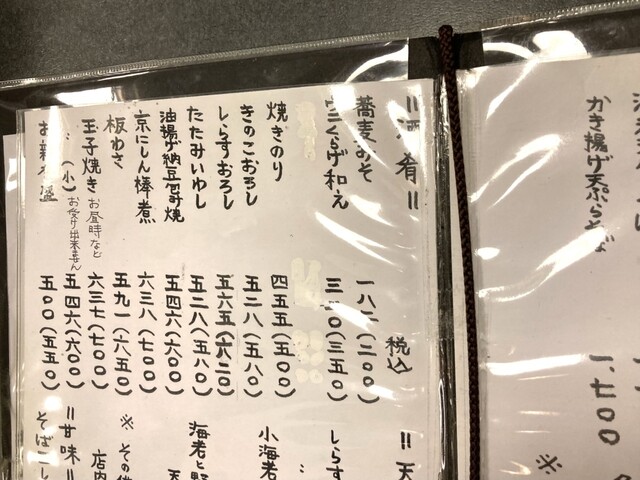 かき揚げ天ぷらそば 一、七〇〇
※
=酒肴= 税込
蕎麦みそ 一八二(二〇〇)
くらげ和え 三二〇(三五〇)
焼きのり 四五五(五〇〇)
きのこおろし 五二八(五八〇)
しらすおろし 五六五(六二〇)
たたみいわし 五二八(五八〇)
油揚げ納豆包み焼 五四六(六〇〇)
京にしん棒煮 六三八(七〇〇)
板わさ 五九一(六五〇)
玉子焼き お昼時など お受け出来ません 六三七(七〇〇)
〃(小) 五四六(六〇〇)
お新香盛 五〇〇(五五〇)
=天
しらす
小海老
海老と野
天
※その他
店内
=甘味=
そば